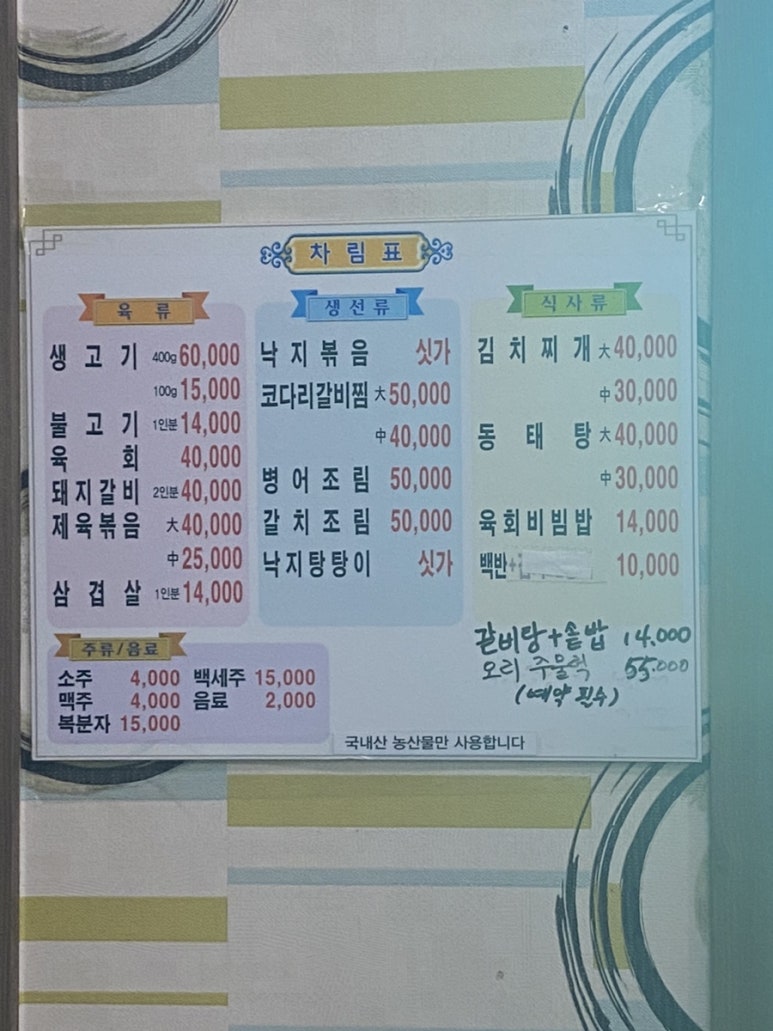 차림표
육류
생고기 400g 60,000
100g 15,000
불고기 1인분 14,000
육회 40,000
돼지갈비 2인분 40,000
제육볶음 大 40,000
中 25,000
삼겹살 1인분 14,000
생선류
낙지볶음 싯가
코다리갈비찜 大 50,000
中 40,000
병어조림 50,000
갈치조림 50,000
낙지탕탕이 싯가
식사류
김치찌개 大 40,000
中 30,000
동태탕 大 40,000
中 30,000
육회비빔밥 14,000
백반+ 10,000
갈비탕+솥밥 14.000
오리 주물럭 55.000
(예약 필수)
주류/음료
소주 4,000 백세주 15,000
맥주 4,000 음료 2,000
복분자 15,000
국내산 농산물만 사용합니다